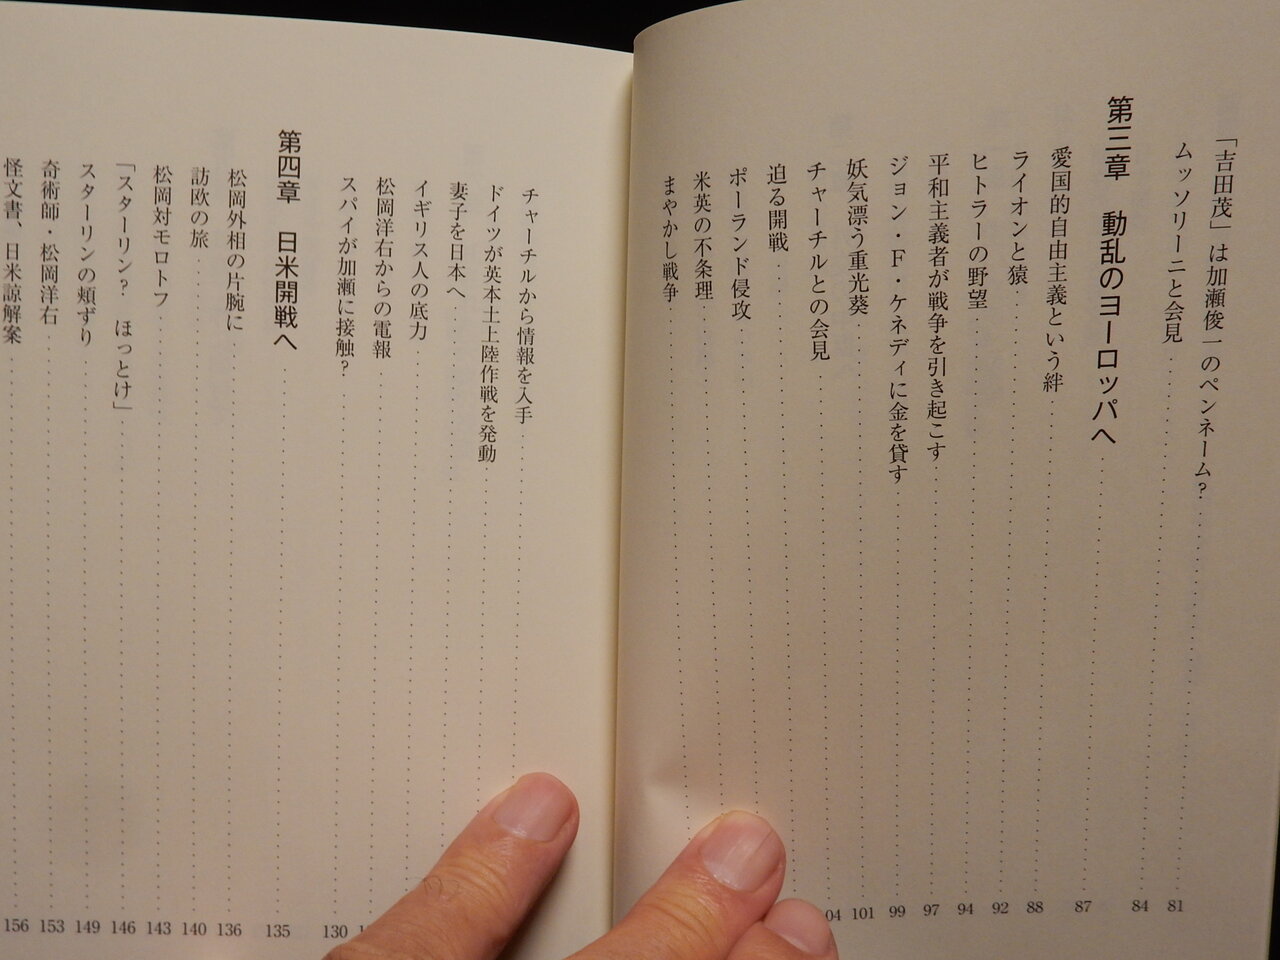 「吉田茂」は加瀬俊一のペンネーム? 81
ムッソリーニと会見 84
第三章 動乱のヨーロッパへ 87
愛国的自由主義という絆 88
ライオンと猿 92
ヒトラーの野望 94
平和主義者が戦争を引き起こす 97
ジョン・F・ケネディに金を貸す 99
妖気漂う重光葵 101
チャーチルとの会見 04
迫る開戦
ポーランド侵攻
米英の不条理
まやかし戦争
チャーチルから情報を入手
ドイツが英本土上陸作戦を発動
妻子を日本へ
イギリス人の底力
松岡洋右からの電報
スパイが加瀬に接触? 130
第四章 日米開戦へ 135
松岡外相の片腕に 136
訪欧の旅 140
松岡対モロトフ 143
「スターリン? ほっとけ」 146
スターリンの頬ずり 149
奇術師・松岡洋右 153
怪文書、日米諒解案 156